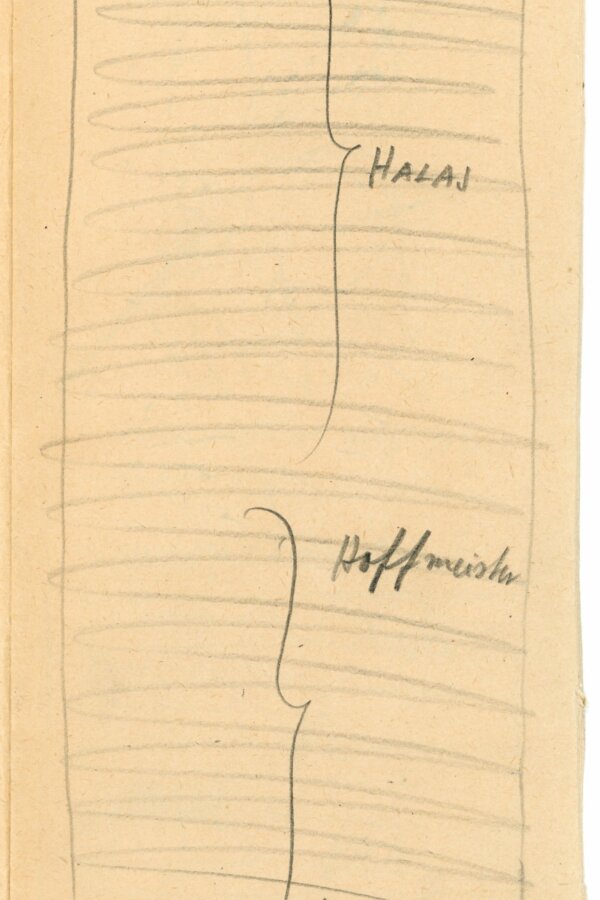 HALAS
Hoffmeister